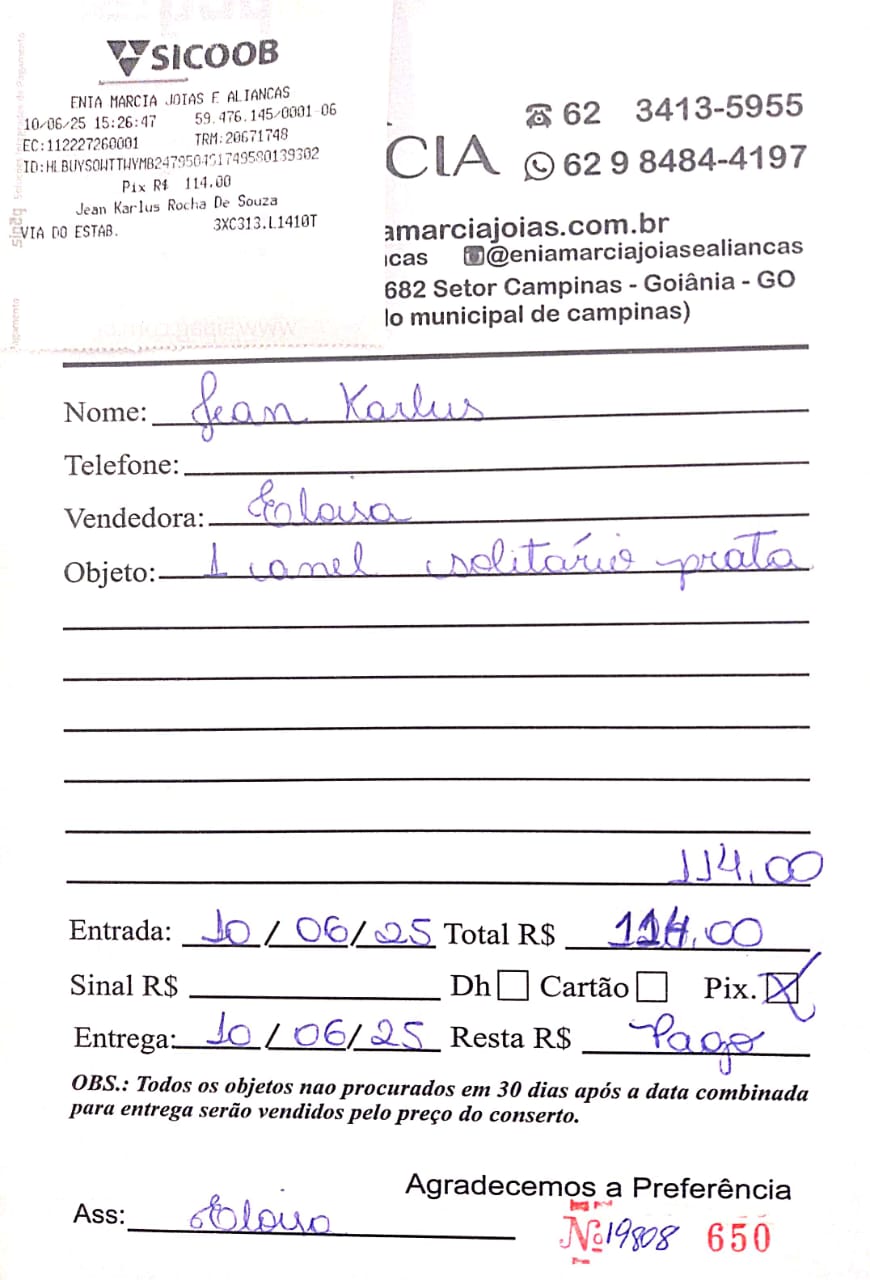 SICOOB
ENIA MARCIA JOIAS E ALIANCAS
10/06/25 15:26:47 59.476.145/0001-06
EC:112227260001 TRM:20671748
Pix R$ 114.00
Jean Karlus Rocha De Souza
VIA DO ESTAB. 3XC313.L1410T
62 3413-5955
CIA
62 9 8484-4197
amarciajoias.com.br
cas @eniamarciajoiasealiancas
682 Setor Campinas - Goiânia - GO
lo municipal de campinas)
Nome: Jean Karlus
Telefone:
Vendedora: Eloisa
Objeto: 1 anel solitário prata
114,00
Entrada: 10/06/25 Total R$ 114,00
Sinal R$ Dh Cartão Pix. X
Entrega: 10/06/25 Resta R$ Pago
OBS.: Todos os objetos nao procurados em 30 dias após a data combinada
para entrega serão vendidos pelo preço do conserto.
Agradecemos a Preferência
Ass: Eloisa
Nº 19808 650